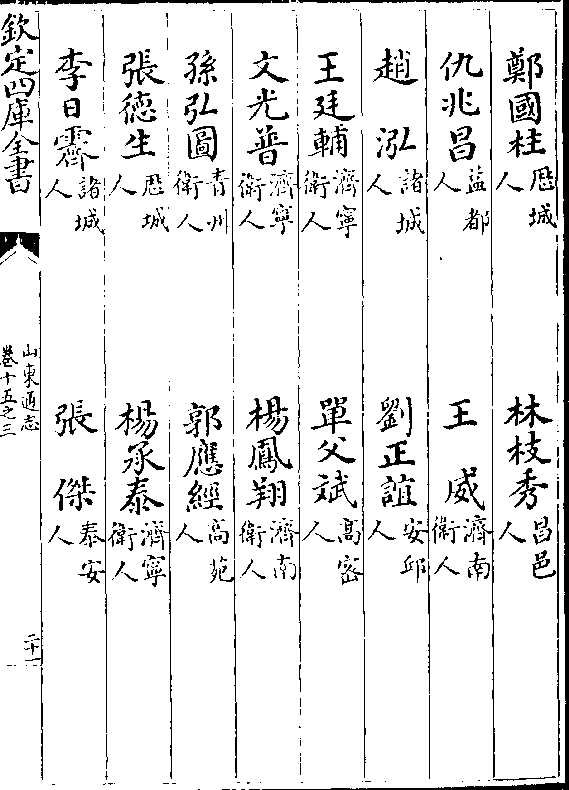 鄭國柱歴城人 林枝秀昌邑人
仇兆昌益都人 王威濟南衛人
趙泓諸城人 劉正誼安邱人
王廷輔濟寧衛人 單父斌髙密人
文光普濟寧衛人 楊鳳翔濟南衛人
孫弘圖青州衛人 郭應經高苑人
張德生歴城人 楊承泰濟寧衛人
李日霽諸城人 張傑泰安人
欽定四庫全書
山東通志
卷十五之三
二十一